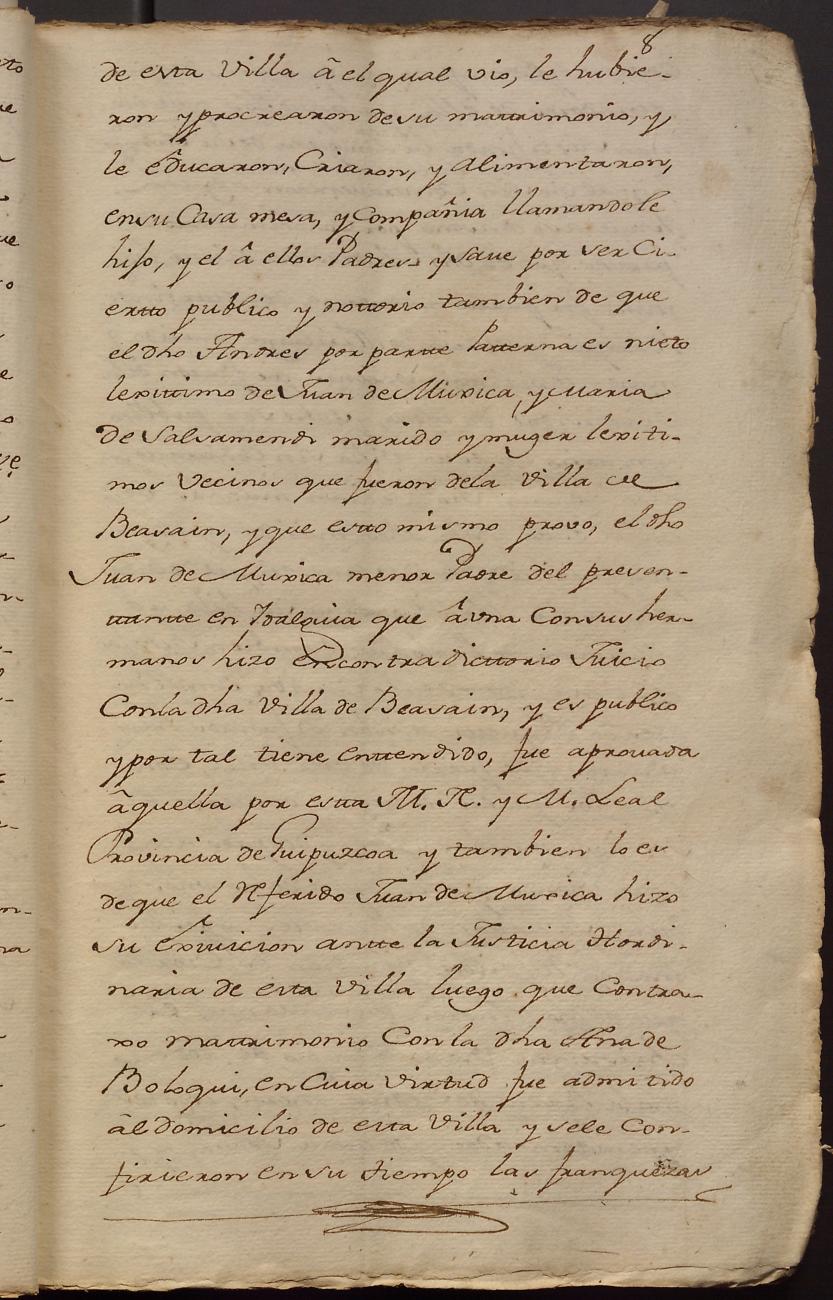 8
de esta Villa â el qual vio, le hubie-
ron y procrearon de su mattrimonio, y
le êducaron, Criaron, y alimentaron,
en su Casa mesa, y Compañia llamandole
hijo, y el â ellos Padres y save por ser Ci-
ertto publico y nottorio tambien de que
el dho Andres por partte Patterna es nieto
lexittimo de Juan de Muxica, y Maria
de Salsamendi marido y muger lexiti-
mos Vecinos que fueron dela Villa de
Beasain, y que estto mismo provo, el dho
Juan de Muxica menor Padre del presen-
ttantte en Idalguia que â una Consus her-
manos hizo en contradicttorio Juicio
Conla dha Villa de Beasain, y es publico
y por tal tiene enttendido, fue aprouada
âquella por estta M. N. y M. Leal
Provincia de Guipuzcoa y tambien lo es
de que el Referido Juan de Muxica hizo
su Exivicion antte la Justicia Hordi-
naria de esta Villa luego que Contra-
xo mattrimonio Con la dha Ana de
Boloqui, en Cuia Virtud fue admitido
âl domicilio de esta Villa y sele Con-
firieron en su tiempo las franquezas